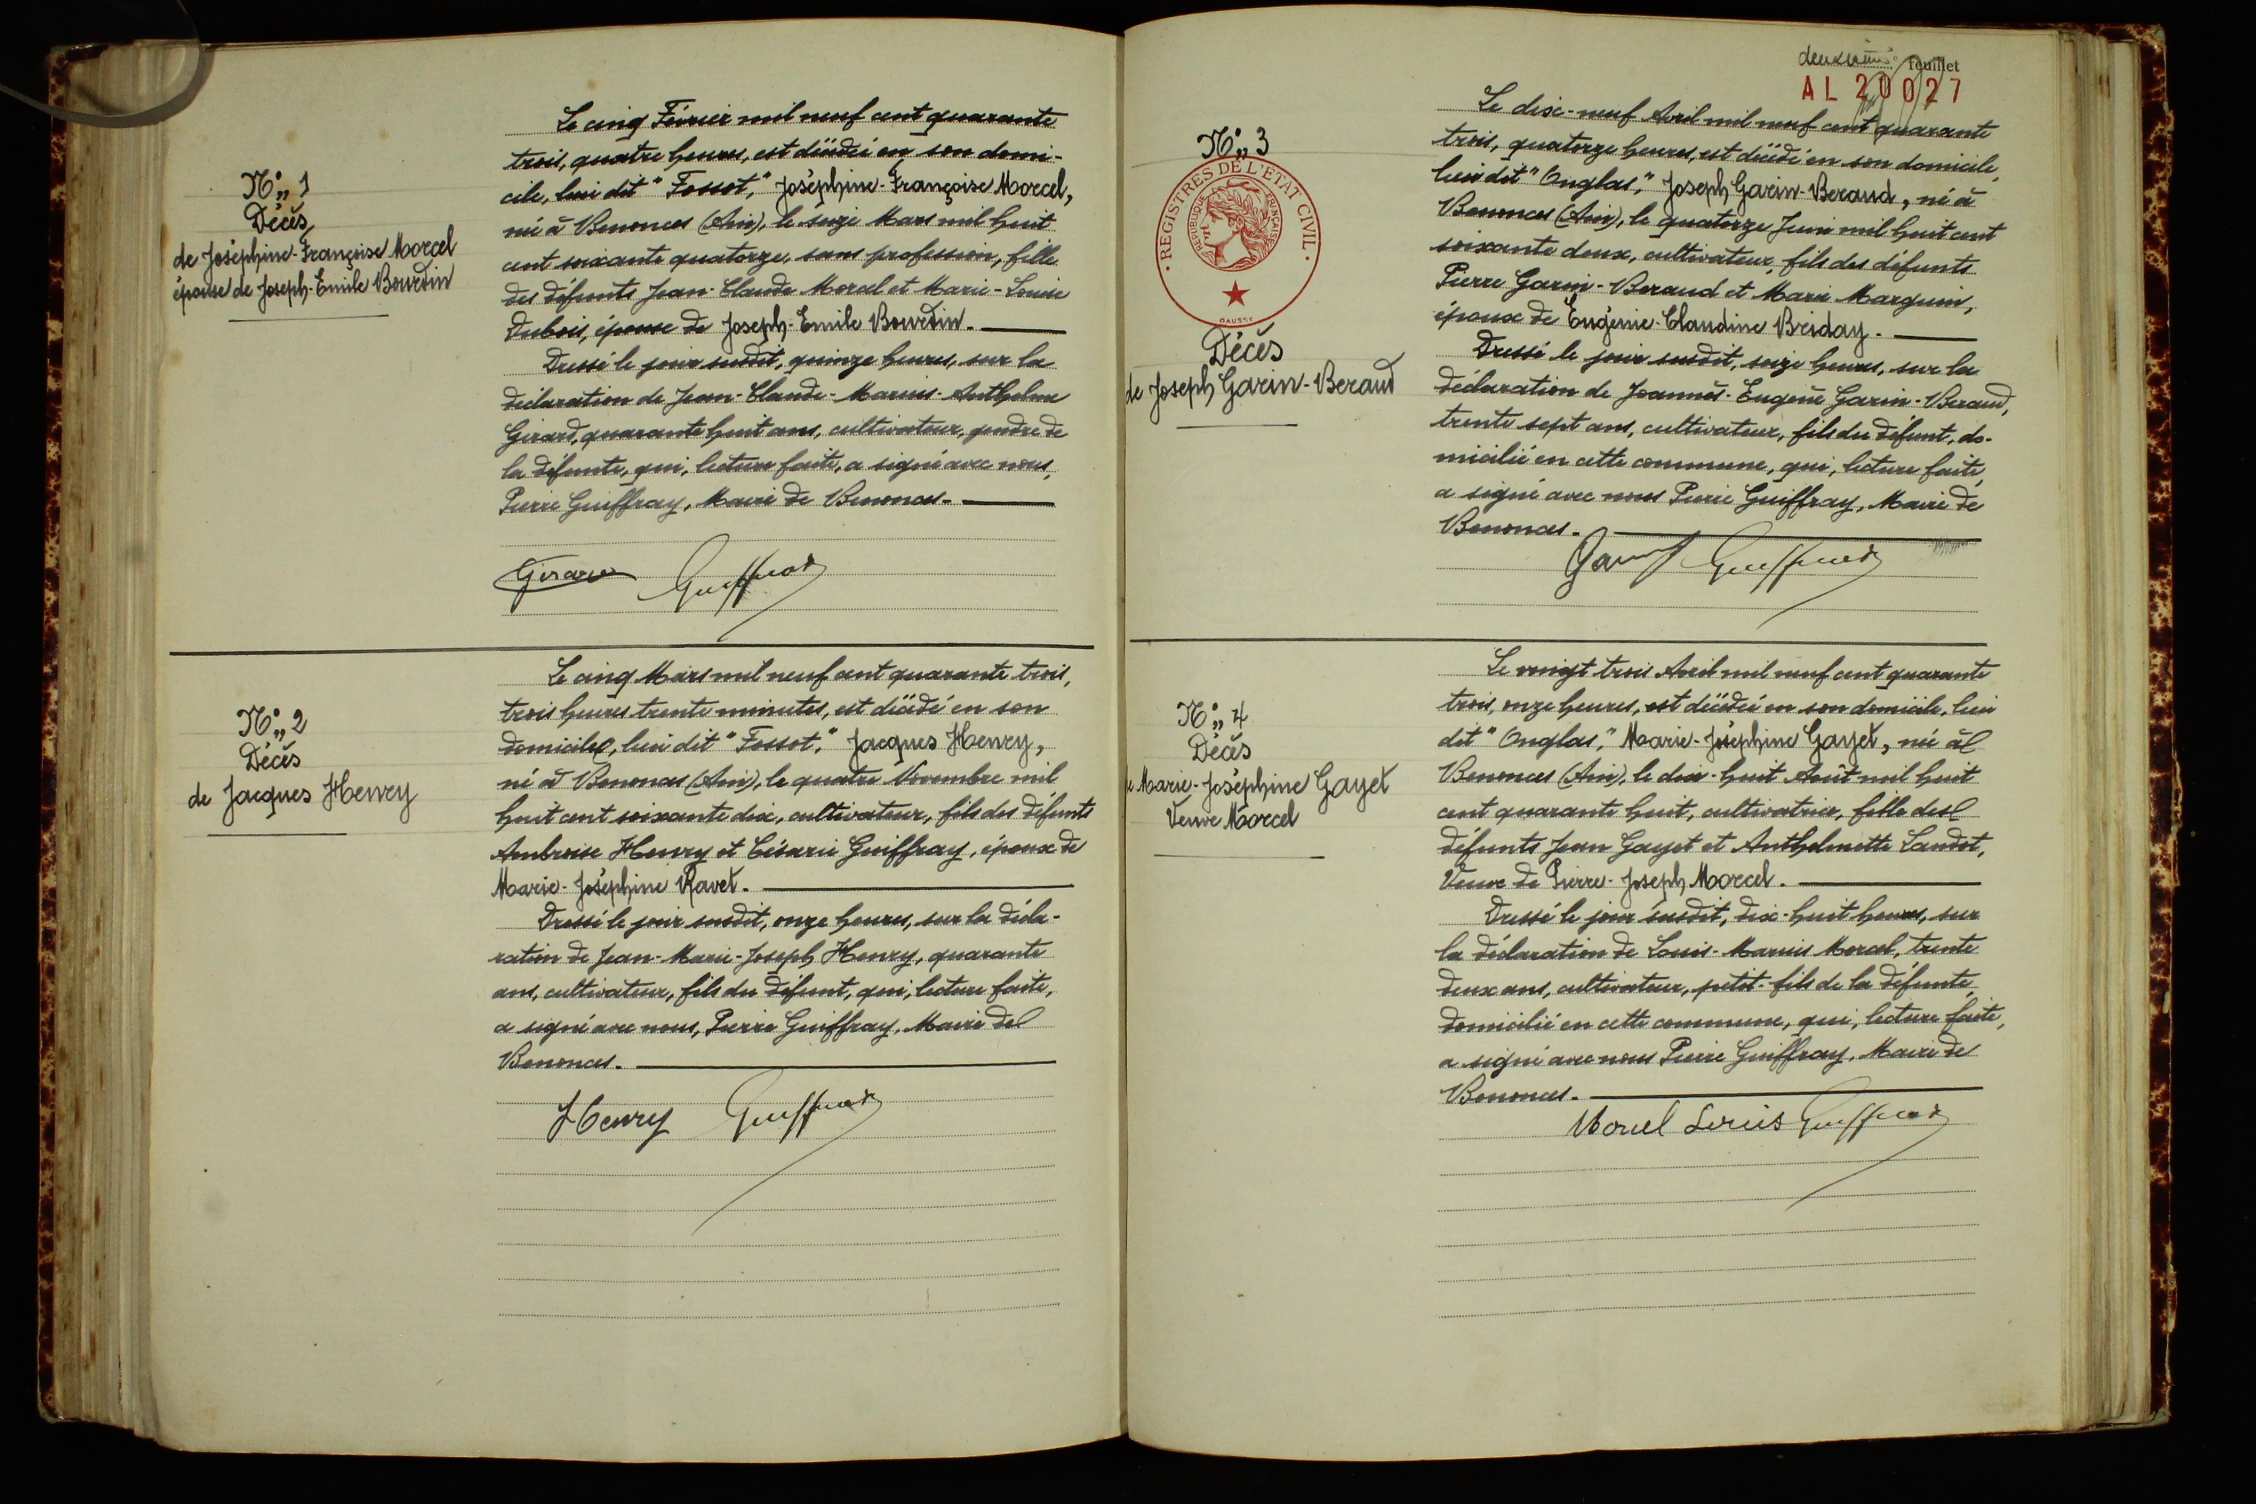 N° 1
Décès
de Joséphine-Françoise Morcel
épouse de Joseph-Emile Bourdin
Le cinq Février mil neuf cent quarante
trois, quatre heures, est décédée en son domi-
cile, lieu dit "Fosset," Joséphine-Françoise Morcel,
née à Benonces (Ain), le seize Mars mil huit
cent soixante quatorze, sans profession, fille
des défunts Jean-Claude Morcel et Marie-Louise
Dubois, épouse de Joseph-Emile Bourdin.
Dressé le jour susdit, quinze heures, sur la
déclaration de Jean-Claude-Marius-Anthelme
Girard, quarante huit ans, cultivateur, gendre de
la défunte, qui, lecture faite, a signé avec nous,
Pierre Guiffray, Maire de Benonces.
Girard Guiffray
N° 2
Décès
de Jacques Henry
Le cinq Mars mil neuf cent quarante trois,
trois heures trente minutes, est décédé en son
domicile, lieu dit "Fosset," Jacques Henry,
né à Benonces (Ain), le quatre Novembre mil
huit cent soixante dix, cultivateur, fils des défunts
Ambroise Henry et Césarie Guiffray, époux de
Marie-Joséphine Ravet.
Dressé le jour susdit, onze heures, sur la décla-
ration de Jean-Marie-Joseph Henry, quarante
ans, cultivateur, fils du défunt, qui, lecture faite,
a signé avec nous, Pierre Guiffray, Maire de
Benonces.
Henry Guiffray
deuxième feuillet
AL 20027
N° 3
REGISTRES DE L'ETAT CIVIL
REPUBLIQUE FRANÇAISE
Décès
de Joseph Garin-Beraud
Le dix-neuf Avril mil neuf cent quarante
trois, quatorze heures, est décédé en son domicile,
lieu dit "Onglas," Joseph Garin-Beraud, né à
Benonces (Ain), le quatorze Juin mil huit cent
soixante deux, cultivateur, fils des défunts
Pierre Garin-Beraud et Marie Marguin,
époux de Eugénie-Claudine Briday.
Dressé le jour susdit, seize heures, sur la
déclaration de Joannès-Eugène Garin-Beraud,
trente sept ans, cultivateur, fils du défunt, do-
micilié en cette commune, qui, lecture faite,
a signé avec nous Pierre Guiffray, Maire de
Benonces.
Garin Guiffray
N° 4
Décès
de Marie-Joséphine Gayet
Veuve Morcel
Le vingt trois Avril mil neuf cent quarante
trois, onze heures, est décédée en son domicile, lieu
dit "Onglas," Marie-Joséphine Gayet, née à
Benonces (Ain), le dix-huit Août mil huit
cent quarante huit, cultivatrice, fille des
défunts Jean Gayet et Anthelmette Landot,
Veuve de Pierre-Joseph Morcel.
Dressé le jour susdit, dix-huit heures, sur
la déclaration de Louis-Marius Morcel, trente
deux ans, cultivateur, petit-fils de la défunte,
domicilié en cette commune, qui, lecture faite,
a signé avec nous Pierre Guiffray, Maire de
Benonces.
Morcel Louis Guiffray